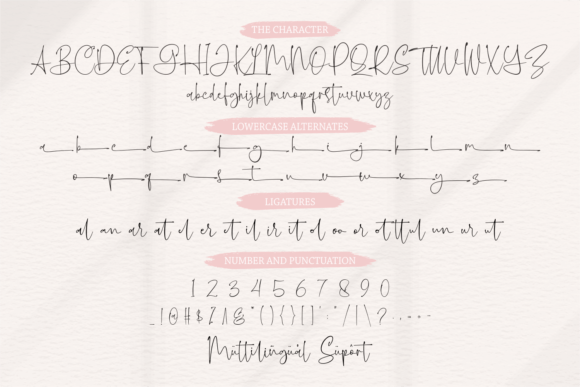 THE CHARACTER
ABCDEFGHIJKLMNOPQRSTUVWXYZ
abcdefghijklmnopqrstuvwxyz
LOWERCASE ALTERNATES
a b c d e f g h i j k l m n
o p q r s t u v w x y z
LIGATURES
al an ar at el er et il ir it ol oo or ot tt ul un ur ut
NUMBER AND PUNCTUATION
1 2 3 4 5 6 7 8 9 0
Muttilingual Suport